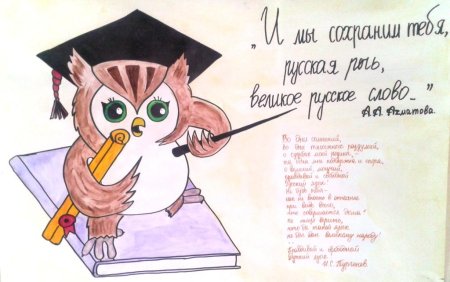 „И мы сохраним тебя,
русская речь,
великое русское слово..."
А.А. Ахматова.
Во дни сомнений,
во дни тягостных раздумий,
о судьбах моей родины,
ты один мне поддержка и опора,
о великий, могучий,
правдивый и свободный
русский язык!
Не будь тебя -
как не впасть в отчаяние
при виде всего,
что совершается дома?
Но нельзя верить,
чтобы такой язык
не был дан великому народу!
свободный
русский язык.
И.С. Тургенев.